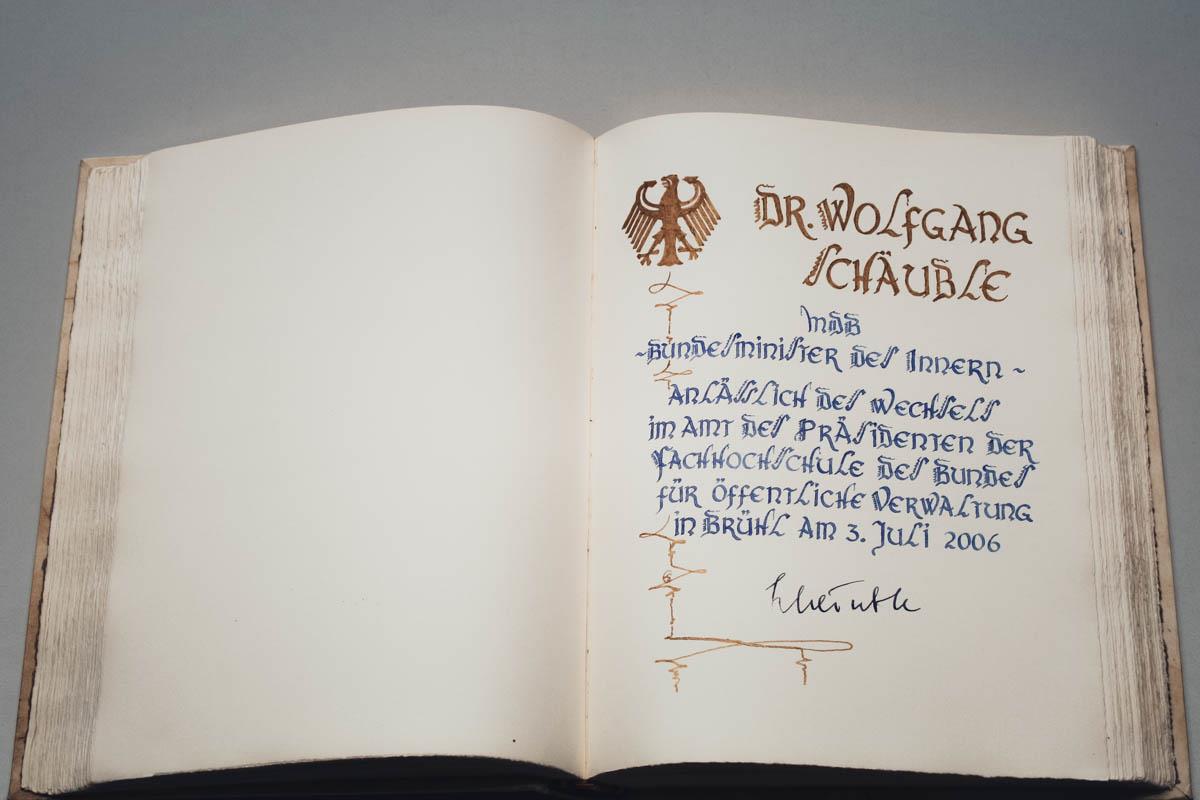 DR. WOLFGANG
SCHÄUBLE
MdB
~ Bundesminister des Innern ~
anläßlich des Wechsels
im Amt des Präsidenten der
Fachhochschule des Bundes
für öffentliche Verwaltung
in Brühl am 3. Juli 2006
Schäuble